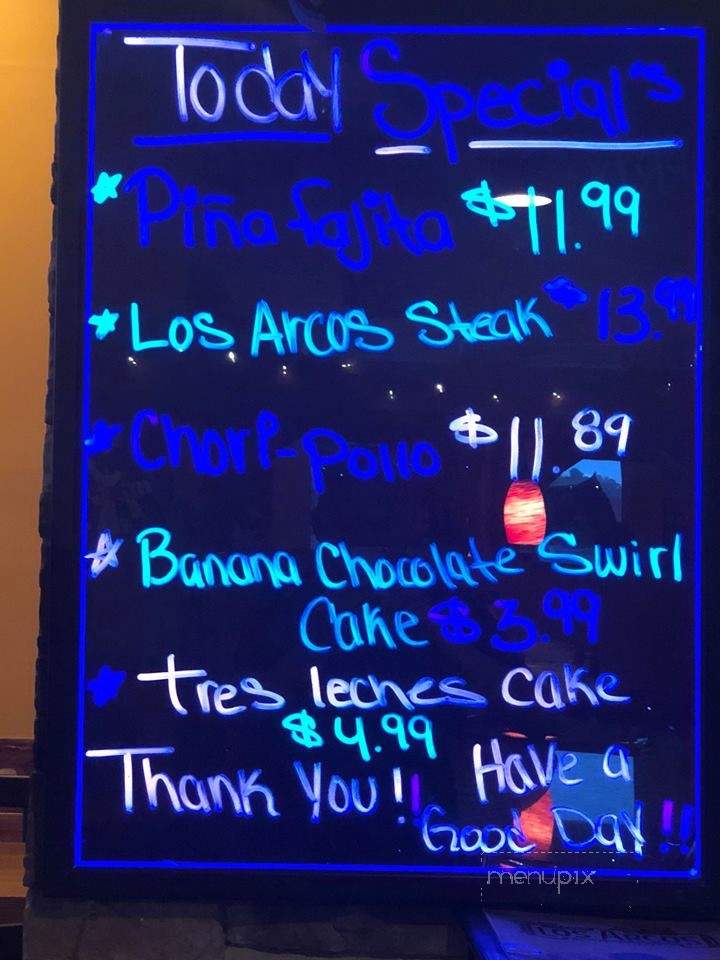 Today Special's
Piña fajita $11.99
Los Arcos Steak $13.99
Chori-Pollo $11.89
Banana Chocolate Swirl
Cake $3.99
Tres leches cake
$4.99
Thank You!! Have a
Good Day!!
menupix
Los Arcos